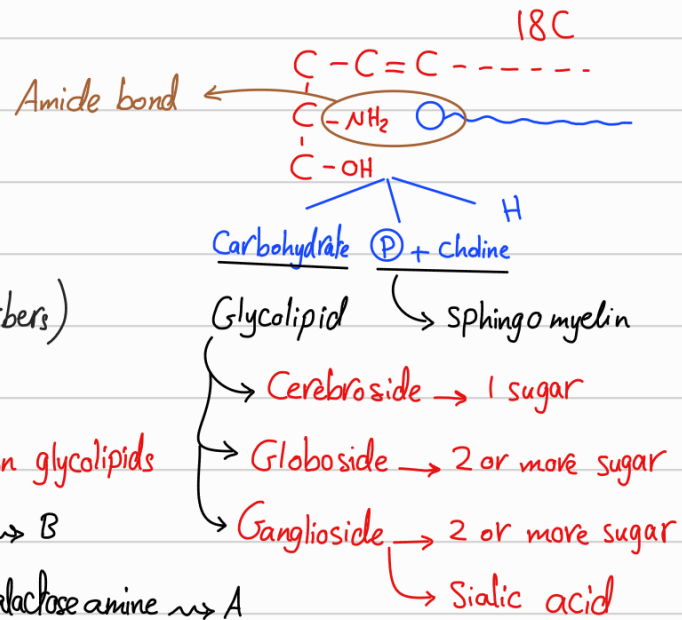 18C
C - C = C - - - - - -
Amide bond
C - NH₂
C - OH
H
Carbohydrate P + Choline
bers) Glycolipid Sphingo myelin
Cerebroside → 1 sugar
n glycolipids Globoside → 2 or more sugar
→ B Ganglioside → 2 or more sugar
lactose amine → A Sialic acid